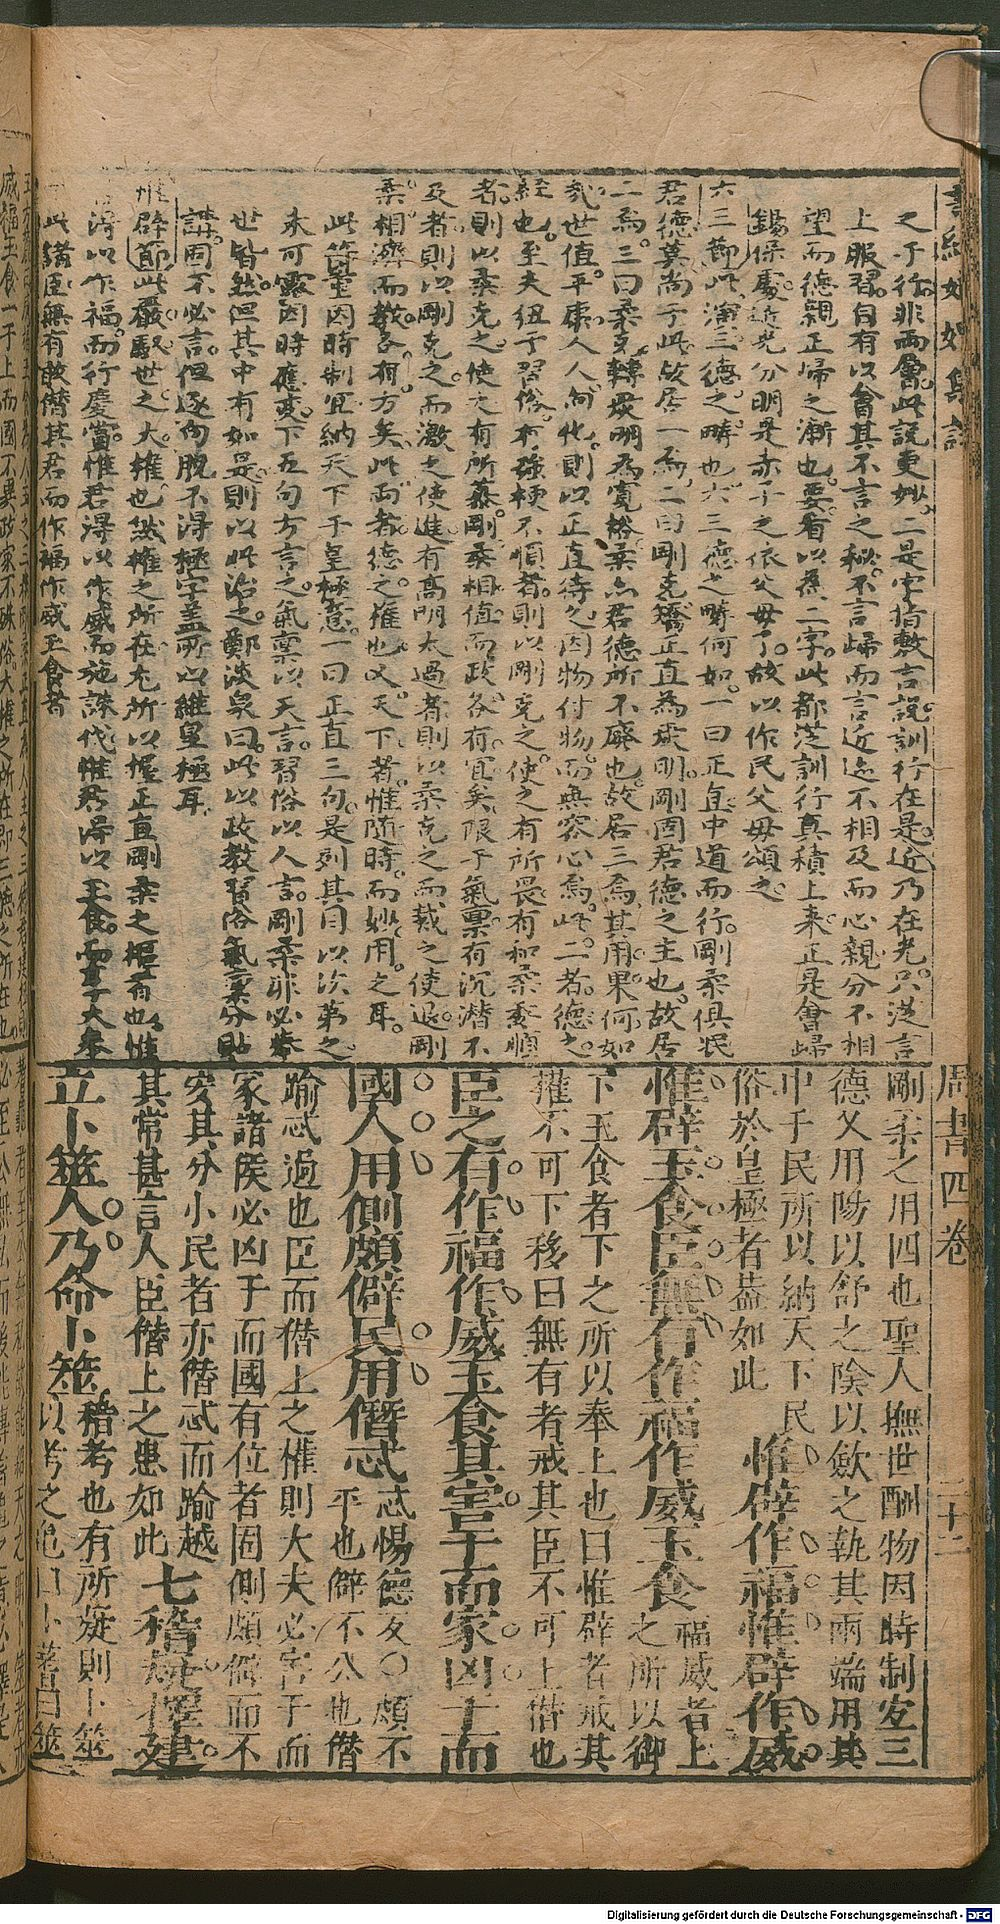 書經如如集註
之于行非兩層此說更妙二是字指敷言說訓行在是近乃在光只從言
上服習自有以會其不言之秘不言歸而言近近不相及而心親分不相
望而德親正歸之漸也要看以為二字此都從訓行真積上来正是會歸
錫保處近光分明是赤子之依父母了故以作民父母頌之
六三節此演三德之疇也六三德之疇何如一曰正直中道而行剛柔俱泯
君德莫尚于此故居一焉二曰剛克矯正直為剛固君德之主也故居
二焉三曰柔克轉嚴明為寬裕柔亦君德所不廢也故居三焉其用果何如
哉世值平康人人向化則以正直待之因物付物而無容心焉此二者德之
經也至夫狃于習俗有強梗不順者則以剛克之使之有所畏有和柔委順
者則以柔克之使之有所慕剛柔相值而政各有宜矣限于氣稟有沉潛不
及者則以剛克之而激之使進有高明太過者則以柔克之而裁之使退剛
柔相濟而教各有方矣此兩者德之權也乂天下者惟随時而妙用之耳
此等重因時制宜納天下于皇極意一曰正直三句是列其目以次第之
未可露因時應変下五句方言之氣稟以天言習俗以人言剛柔非必舉
世皆然但其中有如是則以此治之鄭淡泉曰此以政教習俗氣稟分貼
講固不必言但逐句脫不得極字蓋所以維皇極耳
惟辟節此嚴馭世之大權也然權之所在尤所以握正直剛柔之樞者也惟
得以作福而行慶賞惟君得以作威而施誅伐惟君得以玉食而享大奉
此講臣無有敢僭其君而作福作威玉食者
周書四卷 二十二
剛柔之用四也聖人撫世酬物因時制宜三
德乂用陽以舒之陰以歛之執其兩端用其
中于民所以納天下民
俗於皇極者葢如此
惟辟作福惟辟作威
惟辟玉食臣無有作福作威玉食
福威者上
之所以御
下玉食者下之所以奉上也曰惟辟者戒其
權不可下移曰無有者戒其臣不可上僭也
臣之有作福作威玉食其害于而家凶于而
國人用側頗僻民用僭忒
忒惕德反○頗不
平也僻不公也僭
踰忒過也臣而僭上之權則大夫必害于而
家諸侯必凶于而國有位者固側頗僻而不
安其分小民者亦僭忒而踰越
其常甚言人臣僭上之患如此
七稽疑擇建
立卜筮人乃命卜筮
稽考也有所疑則卜筮
以考之龜曰卜蓍曰筮
Digitalisierung gefördert durch die Deutsche Forschungsgemeinschaft - DFG